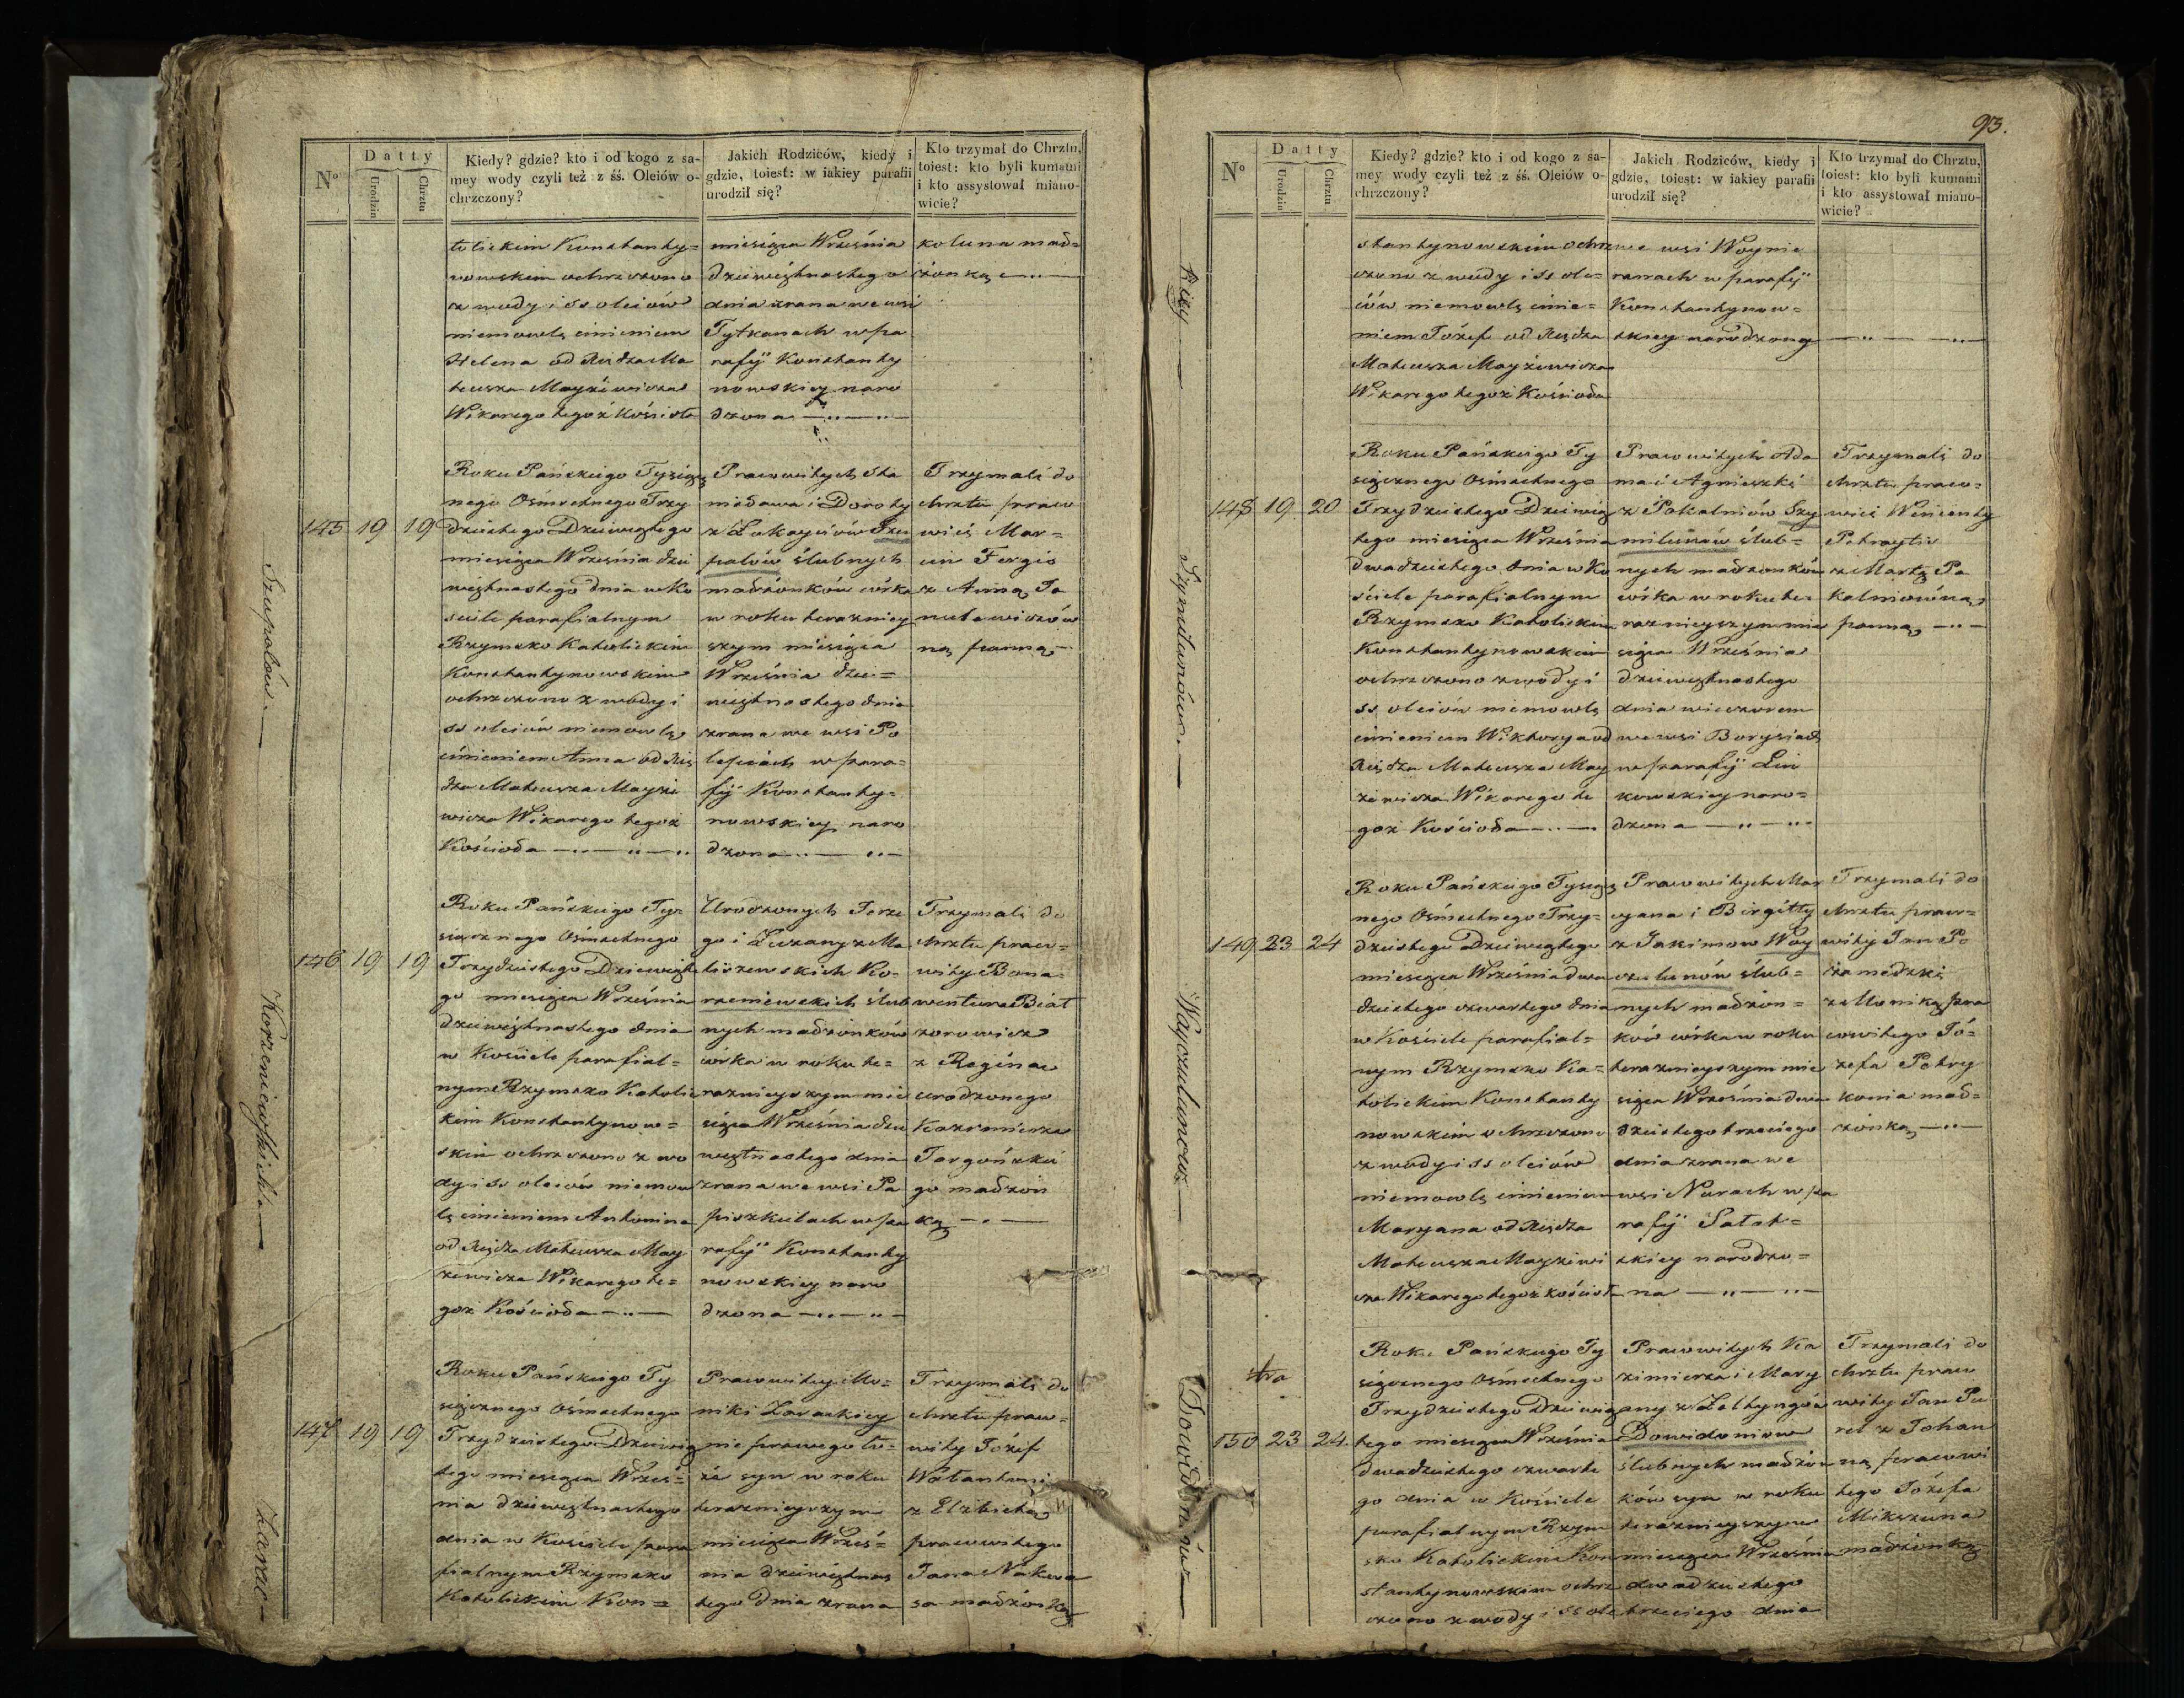 Nº
Datty
Urodzin
Chrztu
Kiedy? gdzie? kto i od kogo z sa-
mey wody czyli też z śś. Oleiów o-
chrzczony?
Jakich Rodziców, kiedy i
gdzie, toiest: w iakiey parafii
urodził się?
Kto trzymał do Chrztu,
toiest: kto byli kumami
i kto assystował miano-
wicie?
tolickim Konstanty=
nowskim ochrzczono
z wody i SS oleiów
niemowlę imieniem
Helena od Xiędza Ma
teusza Mayżewicza
Wikarego tegoż Kościoła
miesiąca Września
dziewiętnastego
dnia zrana we wsi
Tytkanach w pa
rafij Konstanty
nowskiey naro
dzona
koluna mał=
żonką
145 19 19
Roku Pańskiego Tysiącz
nego Ośmsetnego Trzy
dziestego Dziewiątego
miesiąca Września dzie
więtnastego dnia w Ko
ściele parafialnym
Rzymsko Katolickim
Konstantynowskim
ochrzczono z wody i
SS oleiów niemowlę
imieniem Anna od Xię
dza Mateusza Mayże
wicza Wikarego tegoż
Kościoła
Prawowitych Sta
nisława i Doroty
z Łokayciów Szu
pałów ślubnych
małżonków córka
w roku teraźniey
szym miesiąca
Września dzie=
więtnastego dnia
zrana we wsi Po
lepiach w para=
fij Konstanty=
nowskiey naro
dzona
Trzymali do
chrztu prawo
wici Mar=
cin Fergis
z Anną Ja
nutowiczów
ną panną
146 19 19
Roku Pańskiego Ty
siącznego Ośmsetnego
Trzydziestego Dziewiąte
go miesiąca Września
dziewiętnastego dnia
w Kościele parafial=
nym Rzymsko Katolic
kim Konstantynow=
skim ochrzczono z wo
dy i SS oleiów niemow
lę imieniem Antonina
od Xiędza Mateusza May
żewicza Wikarego te=
goż Kościoła
Urodzonych Jerze
go i Zuzany z Ma
liszewskich Ko=
rzeniewskich ślub
nych małżonków
córka w roku te=
raźnieyszym mie
siąca Września dzie
więtnastego dnia
zrana we wsi Pa
piszkulach w pa
rafij Konstanty
nowskiey naro
dzona
Trzymali do
chrztu prawo=
wity Bona=
wentura Biał
zorowicz
z Reginą
urodzonego
Kazimierza
Targońskie
go małżon
ką
147 19 19
Roku Pańskiego Ty
siącznego Ośmsetnego
Trzydziestego Dziewią
tego miesiąca Wrześ=
nia dziewiętnastego
dnia w Kościele para
fialnym Rzymsko
Katolickim Kon=
Prawowitey Mo=
niki Zarackiey
nie prawego ło=
ża syn w roku
teraźnieyszym
miesiąca Wrześ=
nia dziewiętnas
tego dnia zrana
Trzymali do
chrztu prawo=
wity Józef
Wałantoni
z Elżbietą
prawowitego
Jana Nakwa
sa małżonką
Szupałów.
Korzeniewskich
93.
Nº
Datty
Urodzin
Chrztu
Kiedy? gdzie? kto i od kogo z sa-
mey wody czyli też z śś. Oleiów o-
chrzczony?
Jakich Rodziców, kiedy i
gdzie, toiest: w iakiey parafii
urodził się?
Kto trzymał do Chrztu,
toiest: kto byli kumami
i kto assystował miano-
wicie?
stantynowskim ochrz
czono z wody i SS ole=
iów niemowlę imie=
niem Józef od Xiędza
Mateusza Mayżewicza
Wikarego tegoż Kościoła
we wsi Woynie
ranach w parafij
Konstantynow=
skiey narodzony
148 19 20
Roku Pańskiego Ty
siącznego Ośmsetnego
Trzydziestego Dziewią
tego miesiąca Września
dwudziestego dnia w Ko
ściele parafialnym
Rzymsko Katolickim
Konstantynowskim
ochrzczono z wody i
SS oleiów niemowlę
imieniem Wiktorya od
Xiędza Mateusza May
żewicza Wikarego te
goż Kościoła
Prawowitych Ada
ma i Agnieszki
z Pokalniów Szy
milunów ślub=
nych małżonków
córka w roku te
raźnieyszym mie
siąca Września
dziewiętnastego
dnia wieczorem
we wsi Borysiach
w parafij Lin
kowskiey naro=
dzona
Trzymali do
chrztu prawo=
wici Wincenty
Petraytis
z Martą Po
kalniówną
panną
149 23 24
Roku Pańskiego Tysiącz
nego Ośmsetnego Trzy=
dziestego Dziewiątego
miesiąca Września dwu
dziestego czwartego dnia
w Kościele parafial=
nym Rzymsko Ka=
tolickim Konstanty
nowskim ochrzczono
z wody i SS oleiów
niemowlę imieniem
Maryana od Xiędza
Mateusza Mayżewi
cza Wikarego tegoż Kościoł
Prawowitych Mar
cyana i Birgitty
z Jakimow Woy
czulunów ślub=
nych małżon=
ków córka w roku
teraźnieyszym mie
siąca Września dwu
dziestego trzeciego
dnia zrana we
wsi Nurach w pa
rafij Sałat=
skiey narodzo=
na
Trzymali do
chrztu prawo=
wity Jan Po
żamedzki
z Moniką pra
wowitego Jó=
zefa Petry
konia mał=
żonką
150 23 24.
Roku Pańskiego Ty
siącznego Ośmsetnego
Trzydziestego Dziewią
tego miesiąca Września
dwudziestego czwarte
go dnia w Kościele
parafialnym Rzym
sko Katolickim Kon
stantynowskim ochrz
czono z wody i SS ole
Prawowitych Ka
zimierza i Mary
any z Zeltyngów
Dowidoniow
ślubnych małżon
ków syn w roku
teraźnieyszym
miesiąca Września
dwudziestego
trzeciego dnia
Trzymali do
chrztu prawo
wity Jan Pu
rel z Johan
ną prawowi
tego Józefa
Mikszuna
małżonką
Szymilunów.
Woyczulunow
Dowidoniów